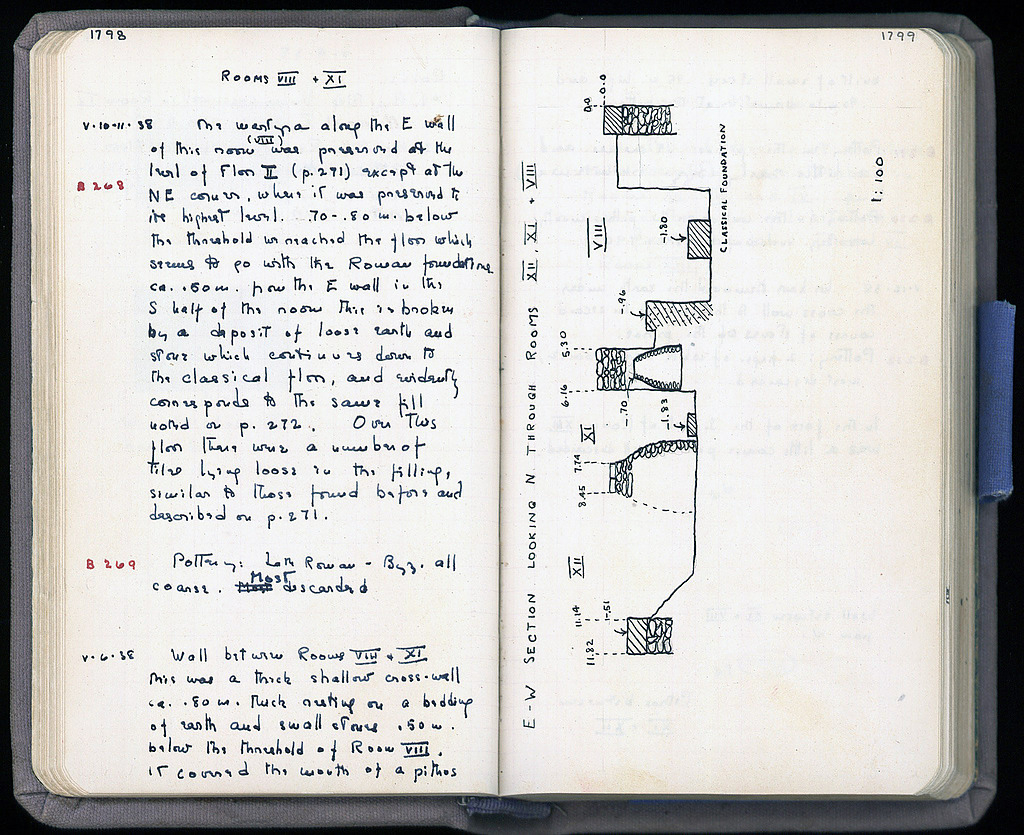 1798
ROOMS VIII + XI
V·10-11·38 The martyra along the E wall
of this room (VIII) was preserved at the
level of Floor II (p.271) except at the
B 268
NE corner, where it was preserved to
its highest level. .70-.80 m. below
the threshold we reached the floor which
seems to go with the Roman foundations
ca. .60m. from the E wall in the
S half of the room this is broken
by a deposit of loose earth and
stone which continues down to
the classical floor, and evidently
corresponds to the same fill
noted on p. 272. Over this
floor there were a number of
tiles lying loose in the filling,
similar to those found before and
described on p.271.
B 269 Pottery: Late Roman - Byz. all
coarse. Most discarded
V·6·38 Wall between Rooms VIII + XI
This was a thick shallow cross-wall
ca. .80 m. thick resting on a bedding
of earth and small stones .50 m.
below the threshold of Room VIII.
It covered the mouth of a pithos
1799
E-W SECTION LOOKING N THROUGH ROOMS XII, XI + VIII
1:100
CLASSICAL FOUNDATION
0.0
0.0
VIII
-1.80
-.96
5.30
6.16
-.70
-1.83
XI
7.74
8.45
XII
11.14
-1.51
11.82